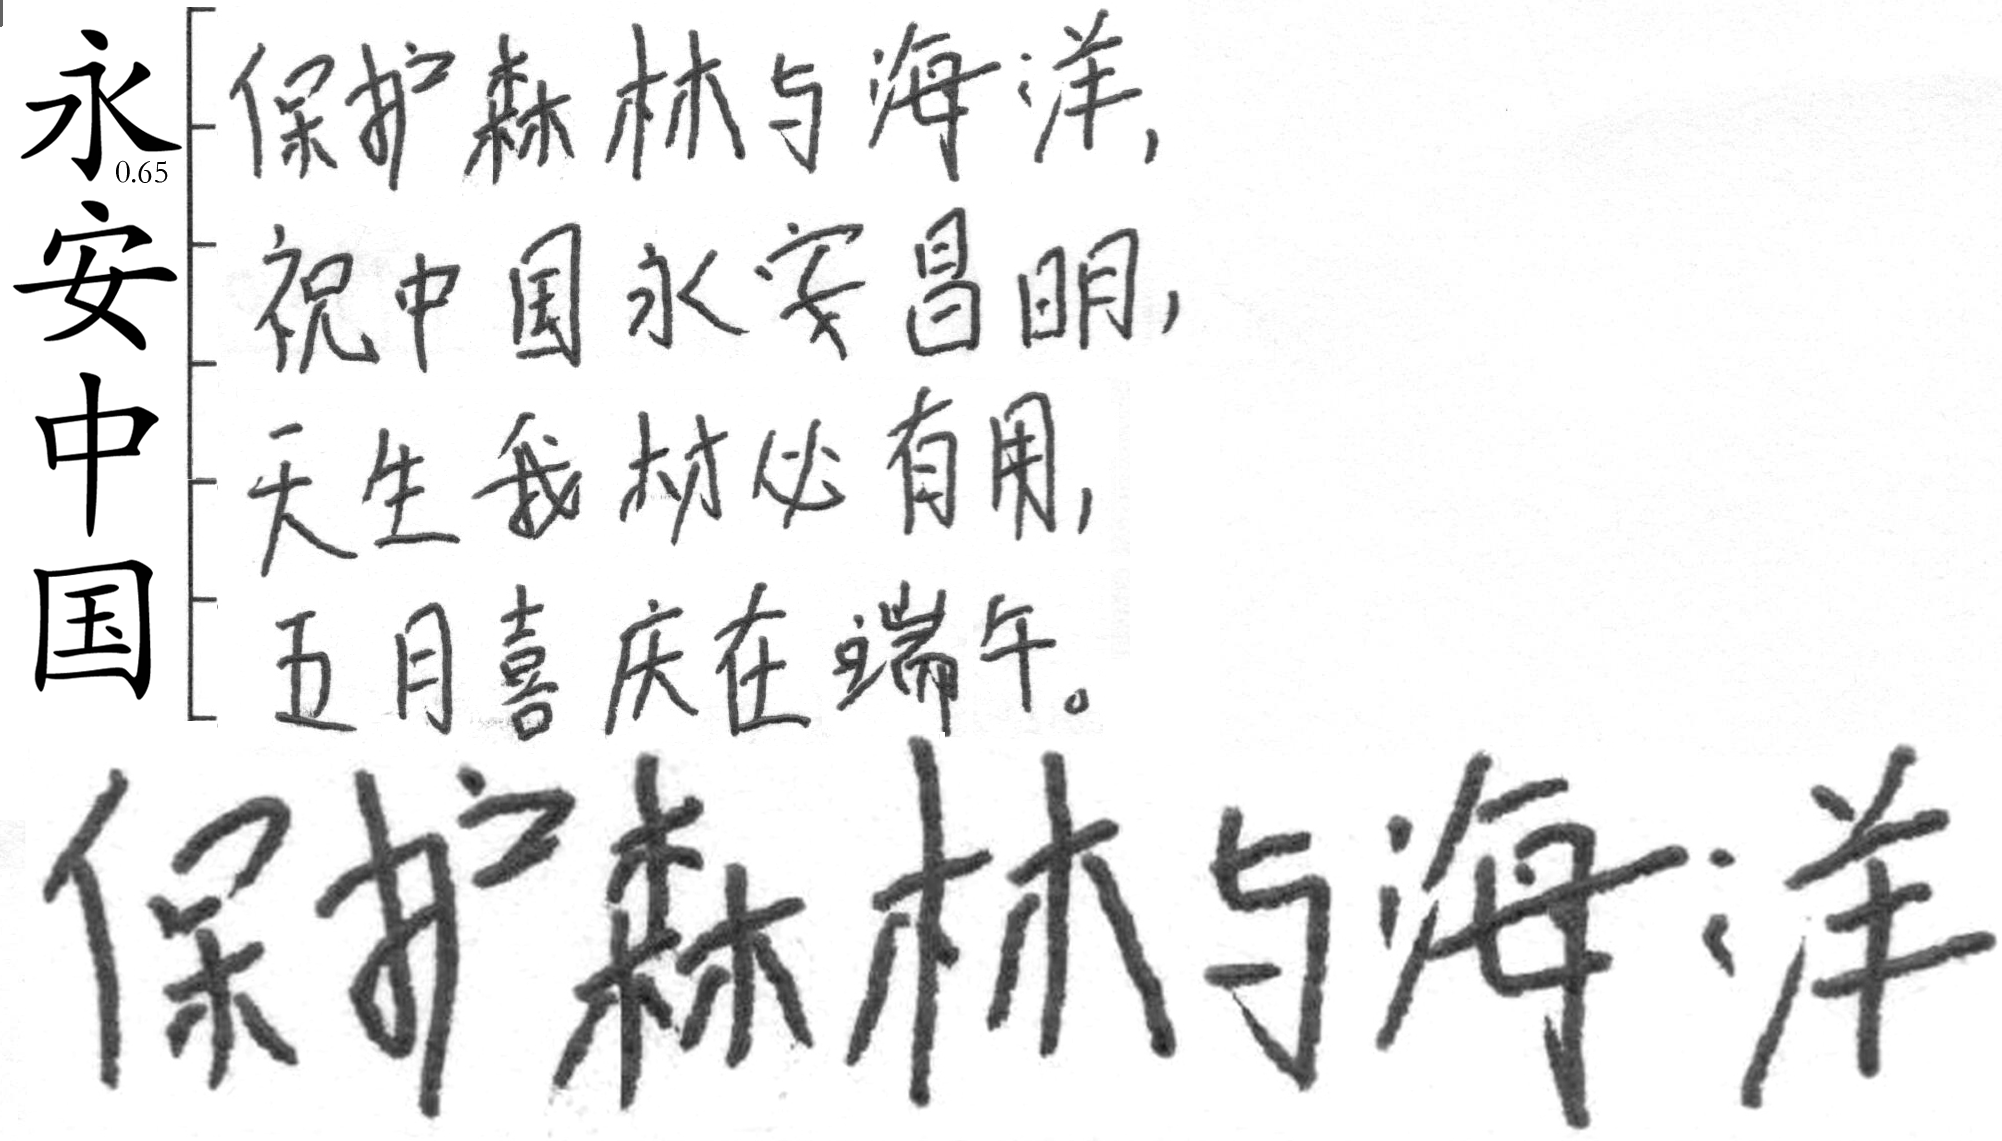 永安中国
0.65
保护森林与海洋，
祝中国永安昌明，
天生我材必有用，
五月喜庆在端午。
保护森林与海洋